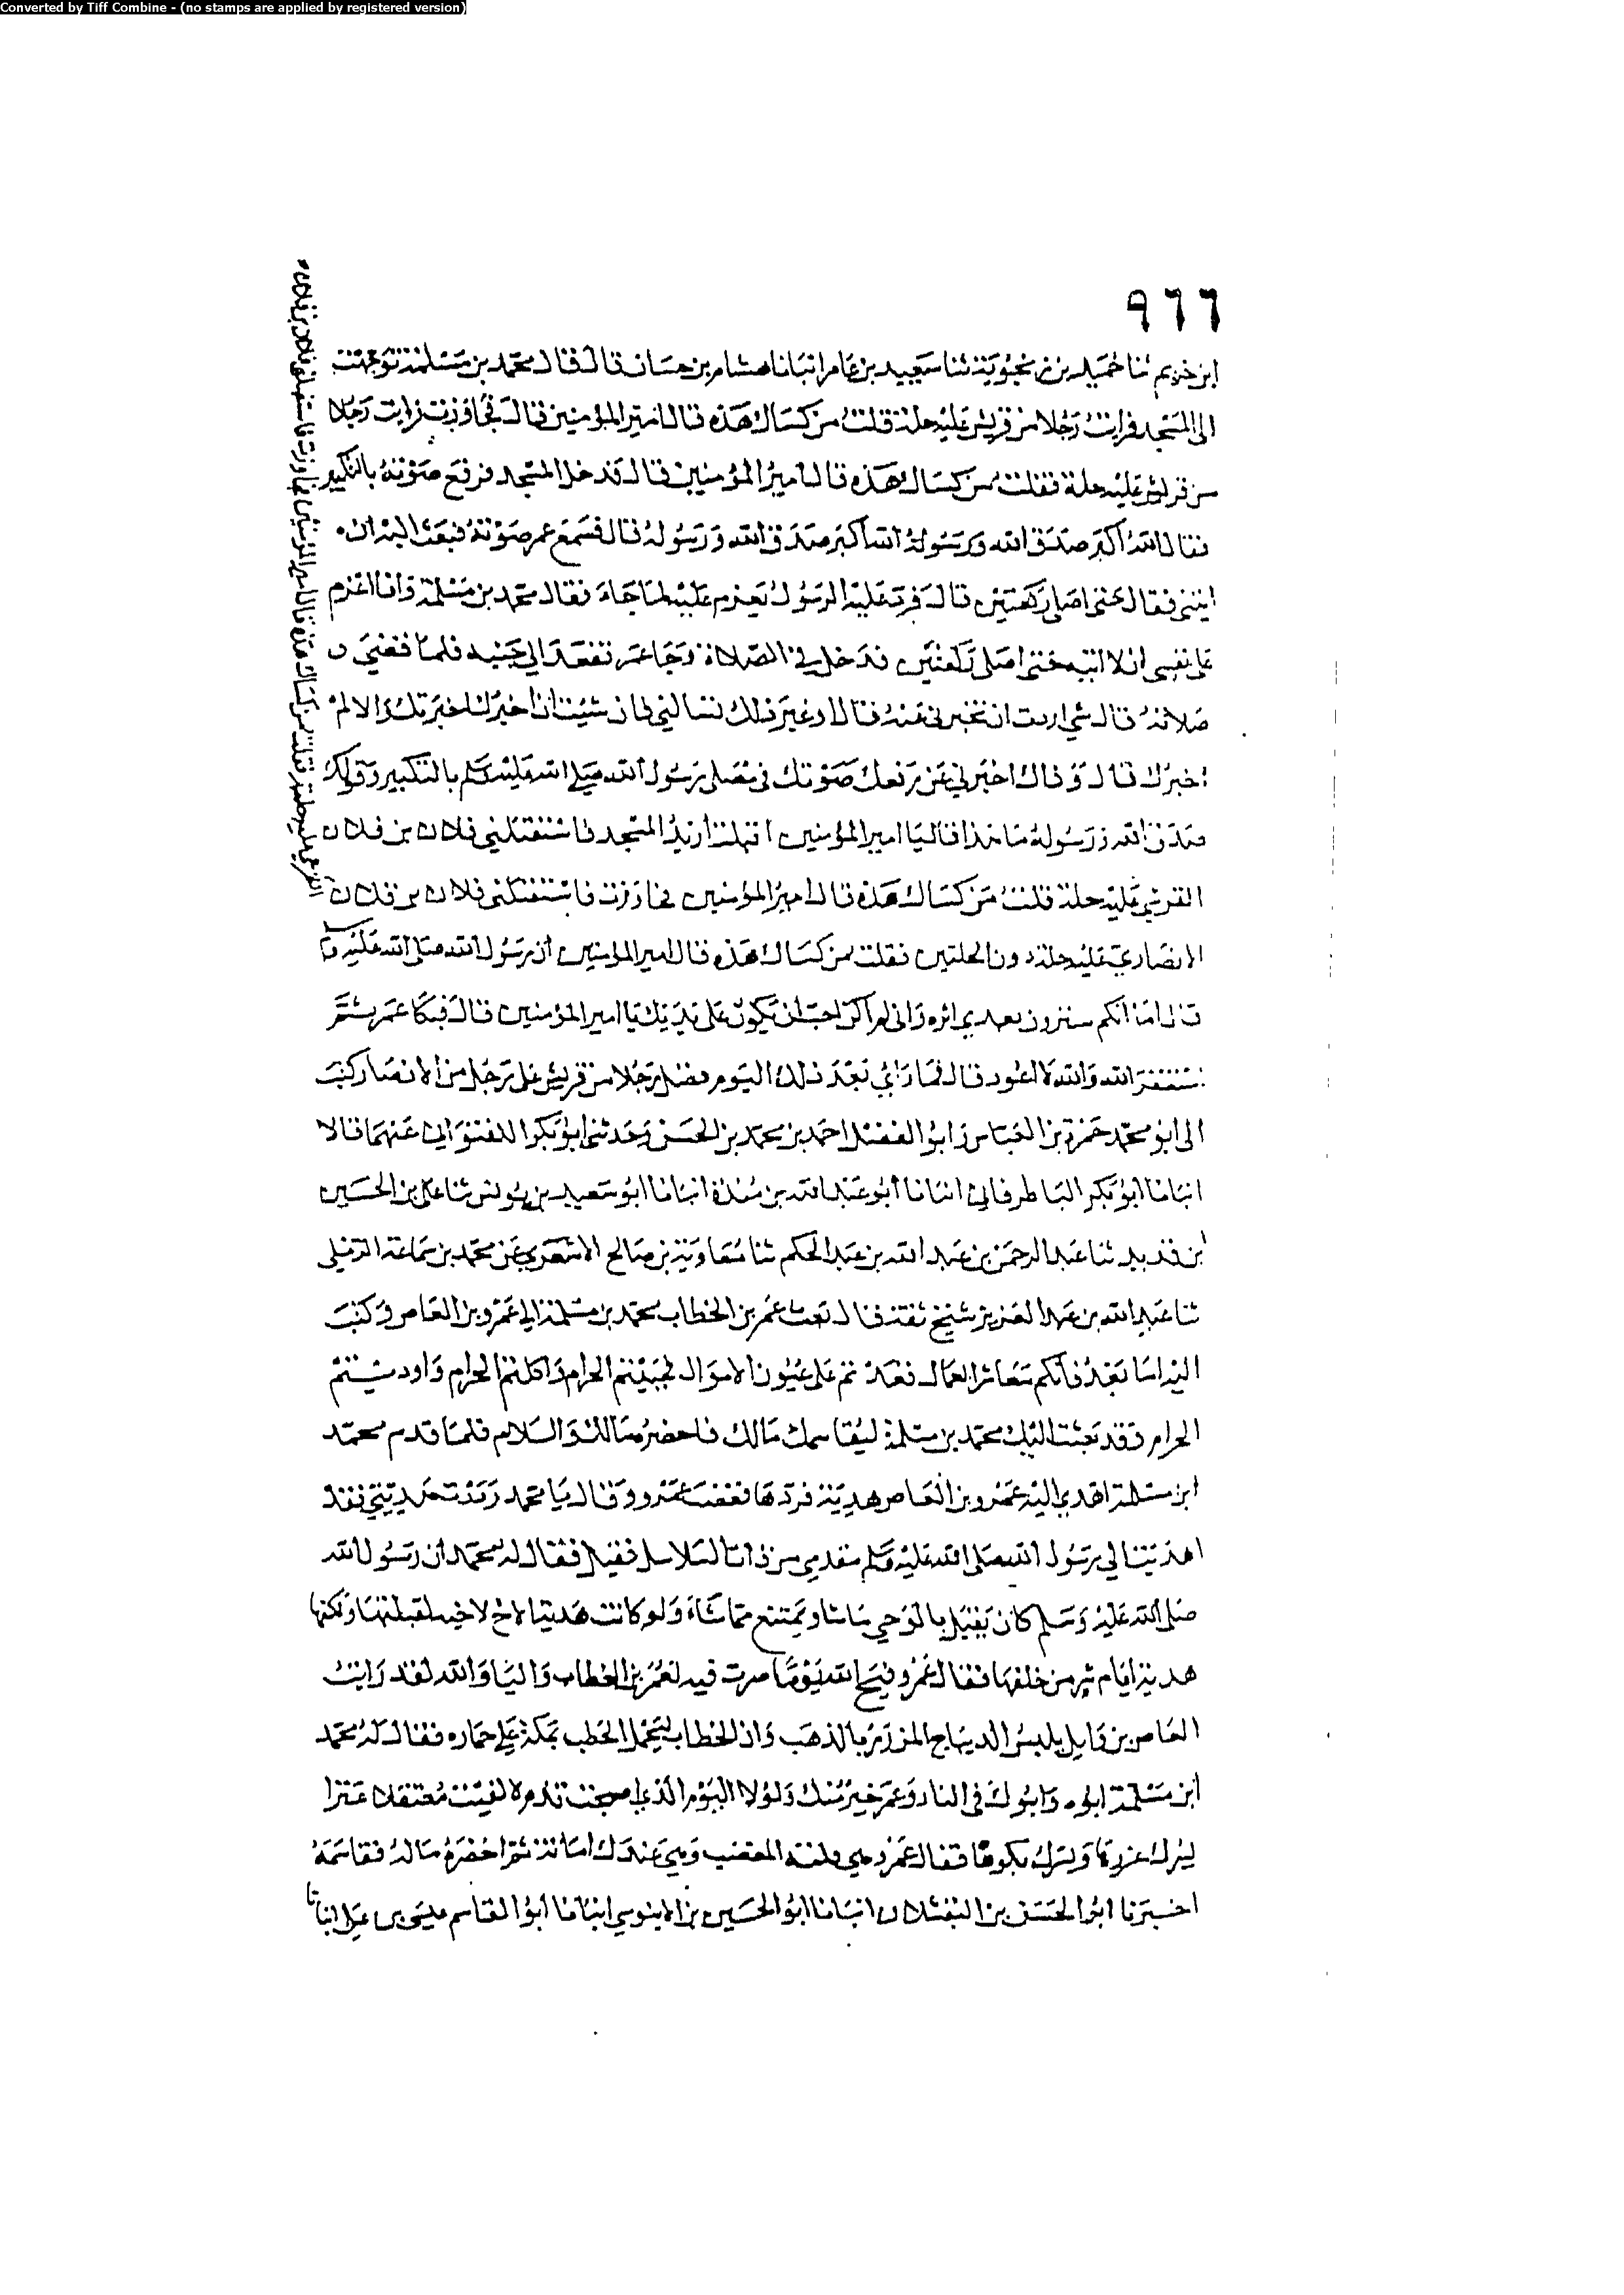 Converted by Tiff Combine - (no stamps are applied by registered version)
٩٦٦
ابن خريم ثنا حميد بن زنجوية ثنا سعيد بن عامر انبانا هشام بن حسان قال قال محمد بن مسلمة توجهت
الى المسجد فرايت رجلا من قريش عليه حلة قلت من كساك هذه قال امير المؤمنين قال فجاوزت فرايت رجلا
من قريش عليه حلة فقلت من كساك هذه قال امير المؤمنين قال فدخل المسجد فرفع صوته بالتكبير
فقال الله اكبر صدق الله ورسوله الله اكبر صدق الله ورسوله قال فسمع عمر صوته فبعث اليه ان
ايتني فقال حتى اصلي ركعتين قال فرد عليه الرسول يعزم عليه لما جاء فقال محمد بن مسلمة وانا اعزم
على نفسي ان لا اتيه حتى اصلي ركعتين فدخل في الصلاة وجا عمر فقعد الى جنبه فلما قضى
صلاته قال اردت ان تخبرني عنه قال او غير ذلك تسالني فان شئت ان اخبرك اخبرتك والا لم
اخبرك قال وذاك اخبرني عن رفعك صوتك في مصلى رسول الله صلى الله عليه وسلم بالتكبير وقولك
صدق الله ورسوله ما هذا قال يا امير المؤمنين اقبلت اريد المسجد فاستقبلني فلان بن فلان
القرشي عليه حلة قلت من كساك هذه قال امير المؤمنين فجاوزت فاستقبلني فلان بن فلان
الانصاري عليه حلة دون الحلتين فقلت من كساك هذه قال امير المؤمنين ان رسول الله صلى الله عليه وسلم
قال اما انكم سترون بعدي اثره واني لم اكن احب ان تكون على يديك يا امير المؤمنين قال فبكا عمر ثم
استغفر الله والله لا اعود قال فما راي بعد ذلك اليوم فضل رجلا من قريش على رجل من الانصار كتب
الى ابو محمد حمزة بن العباس وابو الفضل احمد بن محمد بن الحسن وحدثني ابو بكر اللفتواني عنهما قالا
انبانا ابو بكر الباطرقاني انبانا ابو عبد الله بن مندة انبانا ابو سعيد بن يونس ثنا علي بن الحسين
ابن قديد ثنا عبد الرحمن بن عبد الله بن عبد الحكم ثنا معاوية بن صالح الاشعري عن محمد بن سماعة الرملي
ثنا عبد الله بن عبد العزيز شيخ ثقة قال بعث عمر بن الخطاب محمد بن مسلمة الى عمرو بن العاص وكتب
اليه اما بعد فانكم معاشر العمال قعدتم على عيون الاموال فجبيتم الحرام واكلتم الحرام واورثتم
الحرام وقد بعثت اليك محمد بن مسلمة ليقاسمك مالك فاحضره مالك والسلام فلما قدم محمد
ابن مسلمة اهدي اليه عمرو بن العاص هدية فردها فغضب عمرو وقال يا محمد رددت هديتي وقد
اهديت الى رسول الله صلى الله عليه وسلم مقدمي من ذات السلاسل فقبل فقال له محمد ان رسول الله
صلى الله عليه وسلم كان يقبل بالوحي ما شا ويمتنع مما شاء ولو كانت هدية الاخ لاخيه لقبلتها ولكنها
هدية امام شر من خلفها فقال عمرو قبح الله يوما صرت فيه لعمر بن الخطاب واليا والله لقد رايت
العاص بن وايل يلبس الديباج المزرر بالذهب وان الخطاب ليحمل الحطب بمكة على حماره فقال له محمد
ابن مسلمة ابوه وابوك في النار وعمر خير منك ولولا اليوم الذي اصبحت تذمه لالفيت معتقلا عنزا
يسرك غزرها ويسوك بكوها فقال عمرو هي فلتة المغضب وهي عندك امانة ثم احضره ماله فقاسمه
اخبرنا ابو الحسن بن البقشلان انبانا ابو الحسين بن الابنوسي انبانا ابو القاسم عيسى بن علي انبانا
القرشي عليه حلة فقلت من كساك هذه قال امير المؤمنين فجاوزت فاستقبلني فلان بن فلان